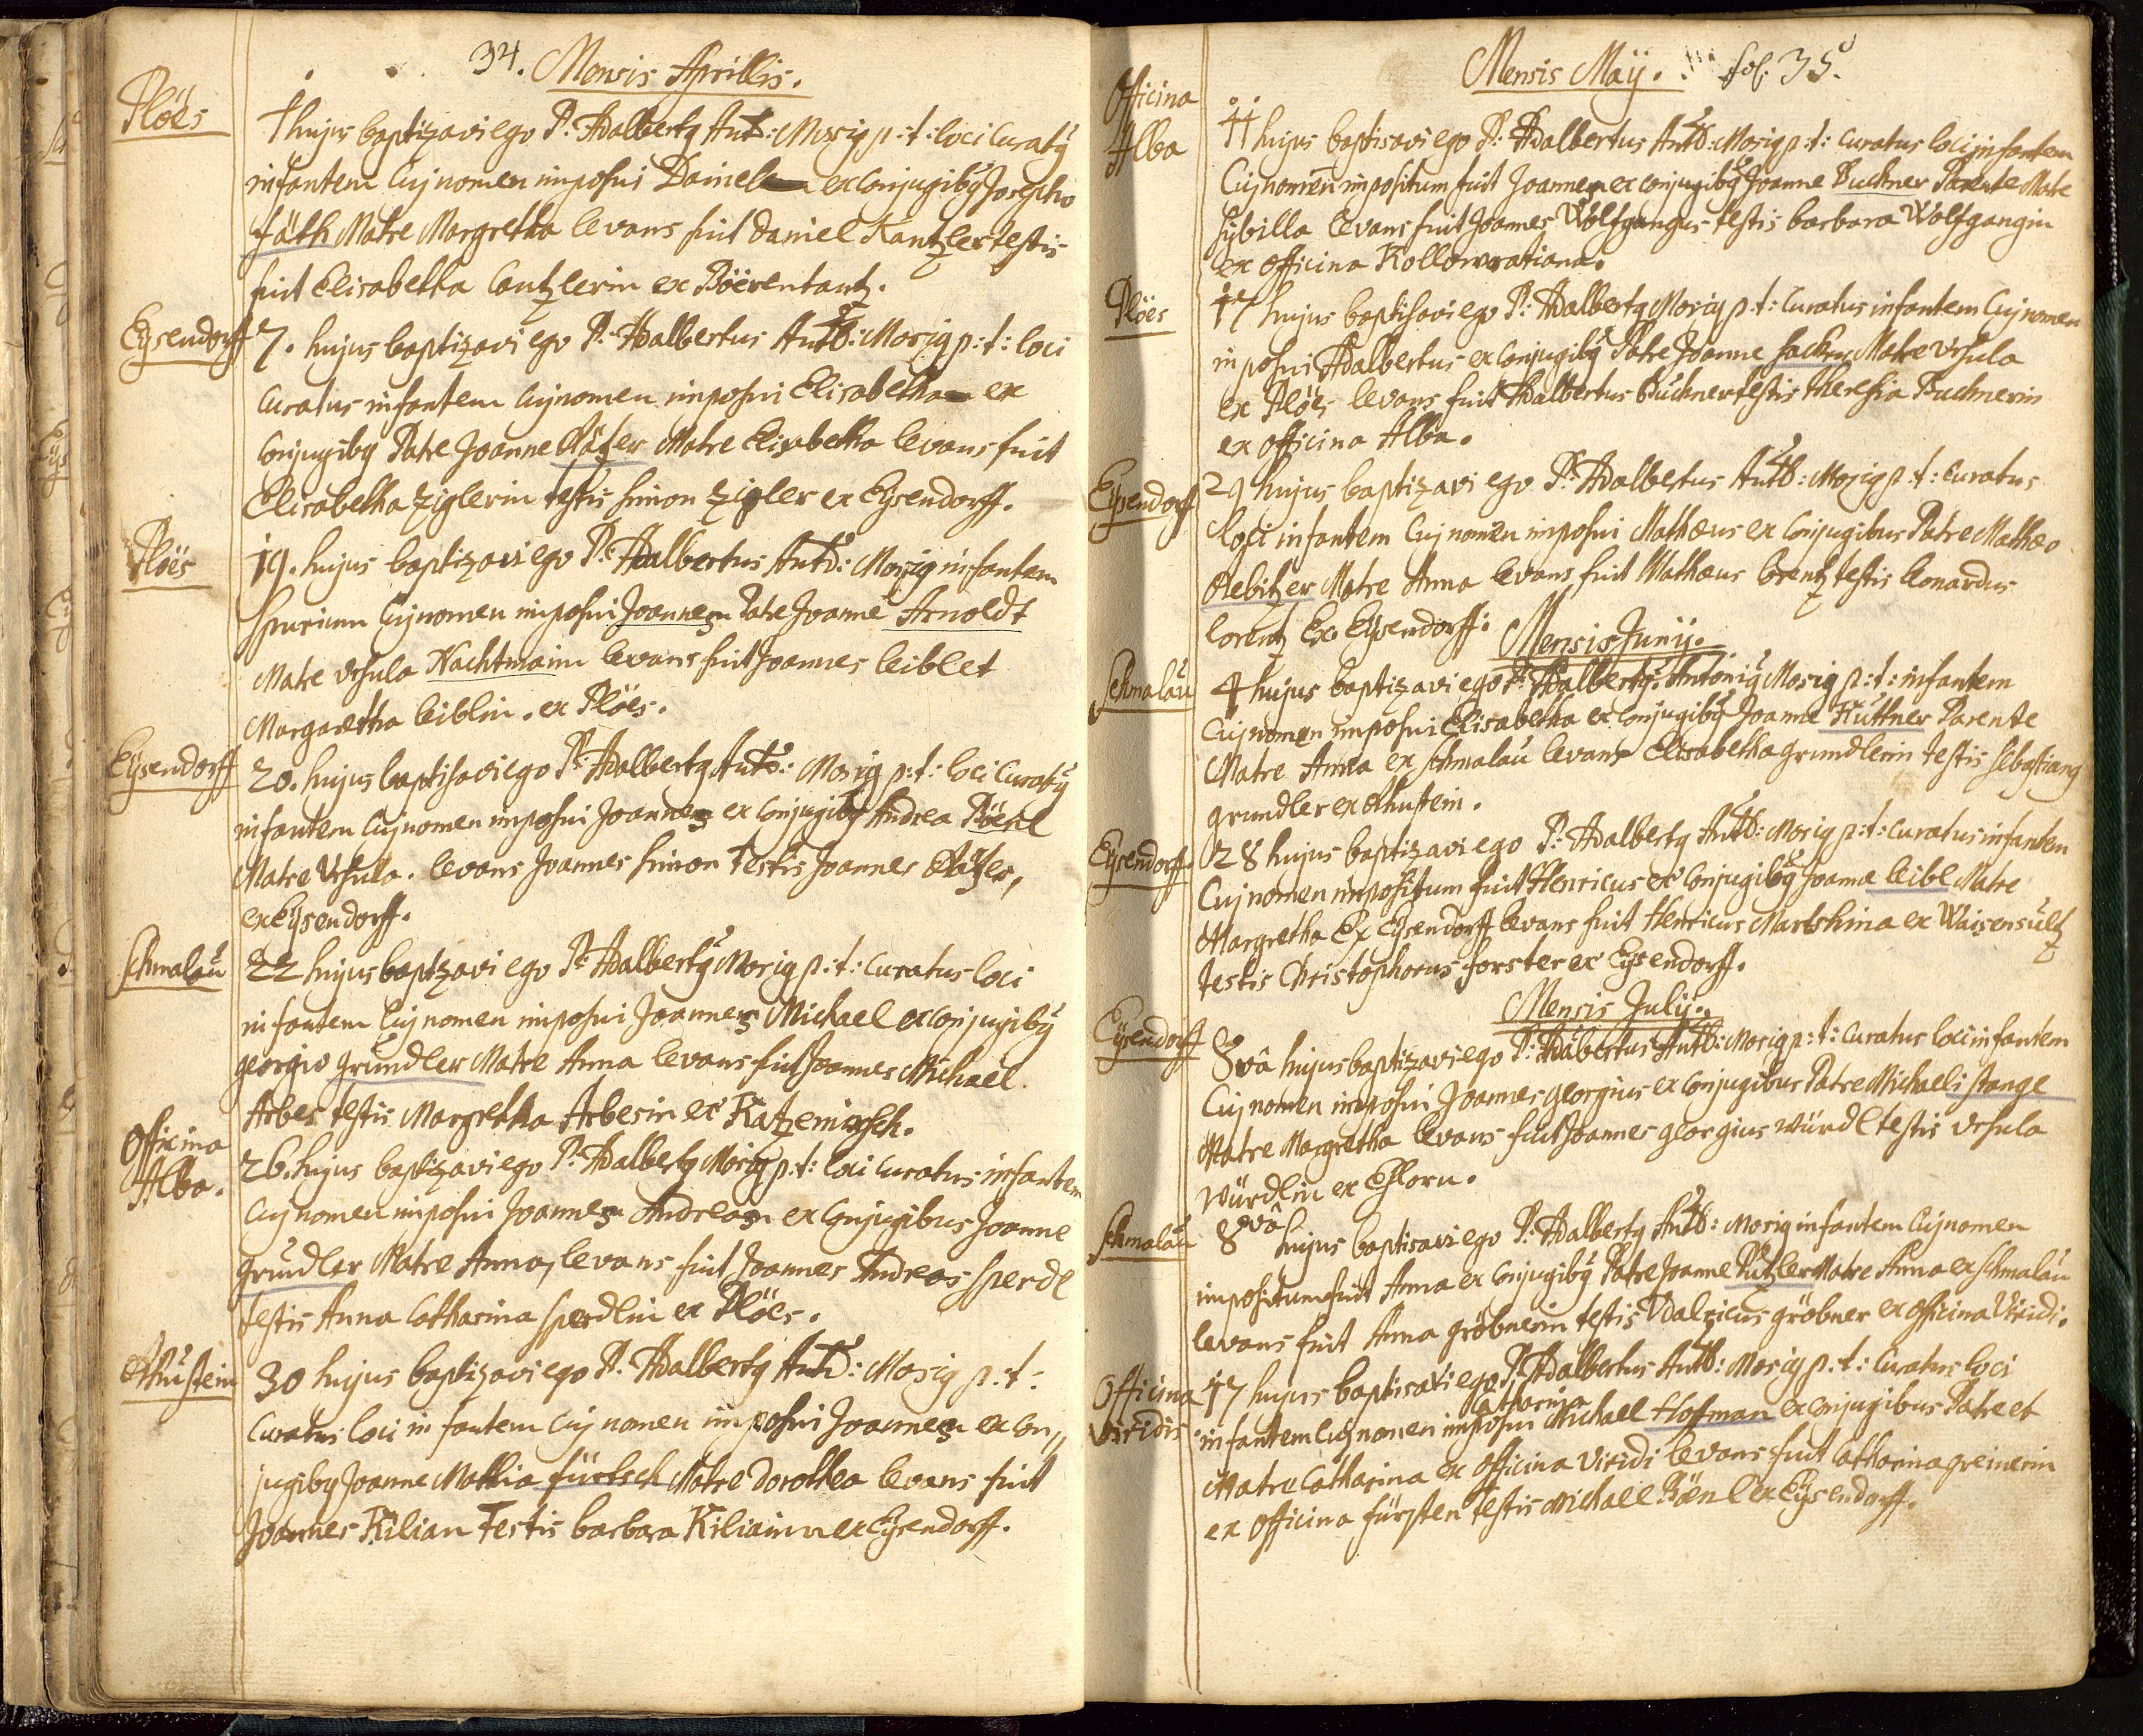 34. Mensis Aprillis.
Plöes
1 hujus baptizavi ego P: Adalbertg Ant: Mosig p:t: loci Curatg
infantem Cuj nomen imposui Daniel ex Conjugibg Josepho
fäth Matre Margretha levans fuit Daniel Kantzler testis
fuit Elisabetha Cantzlerin ex Böërentantz.
Eysendorff
7. hujus baptizavi ego P: Adalbertus Antō: Mosig p:t: loci
Curatus infantem Cuj nomen imposui Elisabetha ex
Conjugibg Patre Joanne Plätzer Matre Elisabetha levans fuit
Elisabetha Ziglerin testis Simon Zigler ex Eysendorff.
Plöes
19. hujus baptizavi ego P: Adalbertus Antō: Mosig infantem
spurium Cuj nomen imposui Joannes Patre Joanne Arnoldt
Matre Vrsula Nachtmanin levans fuit Joannes leiblet
Margaretha leiblin. ex Plöes.
Eysendorff
20. hujus baptisavi ego P: Adalbertg Antō: Mosig p:t: loci Curatg
infantem Cuj nomen imposui Joannes ex Conjugibg Andrea Pöenl
Matre Vrsula. levans Joannes Simon Testis Joannes Plätzer,
ex Eysendorff.
Schmalau
22 hujus baptzavi ego P: Adalbertg Mosig p:t: Curatus loci
infantem Cuj nomen imposui Joannes Michael ex Conjugibg
georgio gründler Matre Anna levans fuit Joannes Michael
Arbes testis Margretha Arbesin ex Katzenirsch.
Officina
Alba.
26. hujus baptizavi ego P: Adalbertg Mosig p:t: loci Curatus infantem
Cuj nomen imposui Joannes Andreas ex Conjugibus Joanne
gründler Matre Anna, levans fuit Joannes Andreas Sperdl
testis Anna Catharina Sperdlin ex Plöes.
Athüstein
30 hujus baptizavi ego P: Adalbertg Antō: Mosig p:t:
Curatus loci infantem Cuj nomen imposui Joannes ex Con„
jugibg Joanne Mathia fürtsch Matre Dorothea levans fuit
Joannes Kilian Testis barbara Kilianin ex Eysendorff.
Mensis Maÿ. fol: 35.
Officina
Alba
11 hujus baptisavi ego P: Adalbertus Antō: Mosig p:t: Curatus loci infantem
Cuj nomen impositum fuit Joannes ex Conjugibg Joanne Puchner Parente Matre
Sybilla levans fuit Joannes Wolfgangus testis barbara Wolfgangin
ex officina Kollowratiana.
Plöes
17 hujus baptisavi ego P: Adalbertg Mosig p:t: Curatus infantem Cuj nomen
imposui Adalbertus ex Conjugibg Patre Joanne Sacker Matre Vrsula
ex Plöes levans fuit Adalbertus Buchner testis theresia Puchnerin
ex officina Alba.
Eysendorff
29 hujus baptizavi ego P: Adalbertus Antō: Mosig p:t: Curatus
loci infantem Cuj nomen imposui Mathæus ex Conjugibus Patre Mathæo
Rebitzer Matre Anna levans fuit Mathæus lorentz testis leonardus
lorentz Ex Eysendorff.
Mensis Junÿ.
Schmalau
4 hujus baptizavi ego P: Adalbertg Antonig Mosig p:t: infantem
Cuj nomen imposui Elisabetha ex Conjugibg Joanne Hüttner Parente
Matre Anna ex Schmalau levans Elisabetha grundlerin testis Sebastiang
grundler ex Athustein.
Eysendorff
28 hujus baptizavi ego P: Adalbertg Antō: Mosig p:t: Curatus infantem
Cuj nomen impositum fuit Henricus ex Conjugibg Joanne leibl Matre
Margretha Ex Eysendorff levans fuit Henricus Martshina ex Waisensultz
testis Christophorus forster ex Eysendorff.
Mensis Julÿ.
Eysendorff
8vâ hujus baptizavi ego P: Adalbertus Antō: Mosig p:t: Curatus loci infantem
Cuj nomen imposui Joannes georgius ex Conjugibus Patre Michaeli stange
Matre Margretha levans fuit Joannes georgius würdl testis Vrsula
würdlin ex Eslorn.
Schmalau
8vâ hujus baptisavi ego P: Adalbertg Antō: Mosig infantem Cuj nomen
impositum fuit Anna ex Conjugibg Patre Joanne Putzler Matre Anna ex Schmalau
levans fuit Anna gröbnerin testis Vdalricus gröbner ex officina Viridi.
Officina
viridis
17 hujus baptisavi ego P: Adalbertus Antō: Mosig p:t: Curatus loci
Catharina
infantem Cuj nomen imposui Michael Hofman ex Conjugibus Patre et
Matre Catharina ex officina Viridi levans fuit Catharina greinerin
ex officina fürsten testis Michael Pöenl ex Eysendorff.